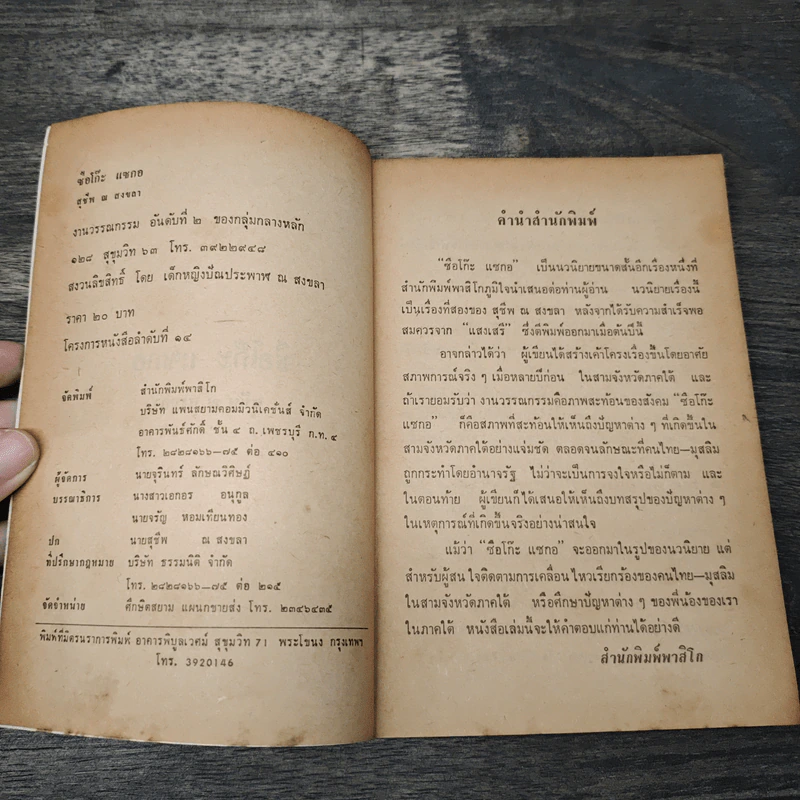 ซือโก๊ะ แซกอ
สุชีพ ณ สงขลา
งานวรรณกรรม อันดับที่ ๒ ของกลุ่มกลางหลัก
๑๒๘ สุขุมวิท ๖๓ โทร. ๓๙๒๒๙๔๘
สงวนลิขสิทธิ์ โดย เด็กหญิงปัณประพาฬ ณ สงขลา
ราคา ๒๐ บาท
โครงการหนังสือลำดับที่ ๑๔
จัดพิมพ์ สำนักพิมพ์พาสิโก
บริษัท แพนสยามคอมมิวนิเคชั่นส์ จำกัด
อาคารพันธ์ศักดิ์ ชั้น ๔ ถ.เพชรบุรี ก.ท. ๔
โทร. ๒๘๒๘๑๖๖–๗๕ ต่อ ๔๑๐
ผู้จัดการ นายจุรินทร์ ลักษณวิศิษฏ์
บรรณาธิการ นางสาวเอกอร อนุกูล
นายจรัญ หอมเทียนทอง
ปก นายสุชีพ ณ สงขลา
ที่ปรึกษากฎหมาย บริษัท ธรรมนิติ จำกัด
โทร. ๒๘๒๘๑๖๖–๗๕ ต่อ ๒๑๕
จัดจำหน่าย ศึกษิตสยาม แผนกขายส่ง โทร. ๒๓๔๖๔๓๕
พิมพ์ที่มิตรนราการพิมพ์ อาคารพิบูลเวศม์ สุขุมวิท 71 พระโขนง กรุงเทพฯ
โทร. 3920146
คำนำสำนักพิมพ์
“ซือโก๊ะ แซกอ” เป็นนวนิยายขนาดสั้นอีกเรื่องหนึ่งที่
สำนักพิมพ์พาสิโกภูมิใจนำเสนอต่อท่านผู้อ่าน นวนิยายเรื่องนี้
เป็นเรื่องที่สองของ สุชีพ ณ สงขลา หลังจากได้รับความสำเร็จพอ
สมควรจาก “แสงเสรี” ซึ่งตีพิมพ์ออกมาเมื่อต้นปีนี้
อาจกล่าวได้ว่า ผู้เขียนได้สร้างเค้าโครงเรื่องขึ้นโดยอาศัย
สภาพการณ์จริง ๆ เมื่อหลายปีก่อน ในสามจังหวัดภาคใต้ และ
ถ้าเรายอมรับว่า งานวรรณกรรมคือภาพสะท้อนของสังคม “ซือโก๊ะ
แซกอ” ก็คือสภาพที่สะท้อนให้เห็นถึงปัญหาต่าง ๆ ที่เกิดขึ้นใน
สามจังหวัดภาคใต้อย่างแจ่มชัด ตลอดจนลักษณะที่คนไทย–มุสลิม
ถูกกระทำโดยอำนาจรัฐ ไม่ว่าจะเป็นการจงใจหรือไม่ก็ตาม และ
ในตอนท้าย ผู้เขียนก็ได้เสนอให้เห็นถึงบทสรุปของปัญหาต่าง ๆ
ในเหตุการณ์ที่เกิดขึ้นจริงอย่างน่าสนใจ
แม้ว่า “ซือโก๊ะ แซกอ” จะออกมาในรูปของนวนิยาย แต่
สำหรับผู้สนใจติดตามการเคลื่อนไหวเรียกร้องของคนไทย–มุสลิม
ในสามจังหวัดภาคใต้ หรือศึกษาปัญหาต่าง ๆ ของพี่น้องของเรา
ในภาคใต้ หนังสือเล่มนี้จะให้คำตอบแก่ท่านได้อย่างดี
สำนักพิมพ์พาสิโก